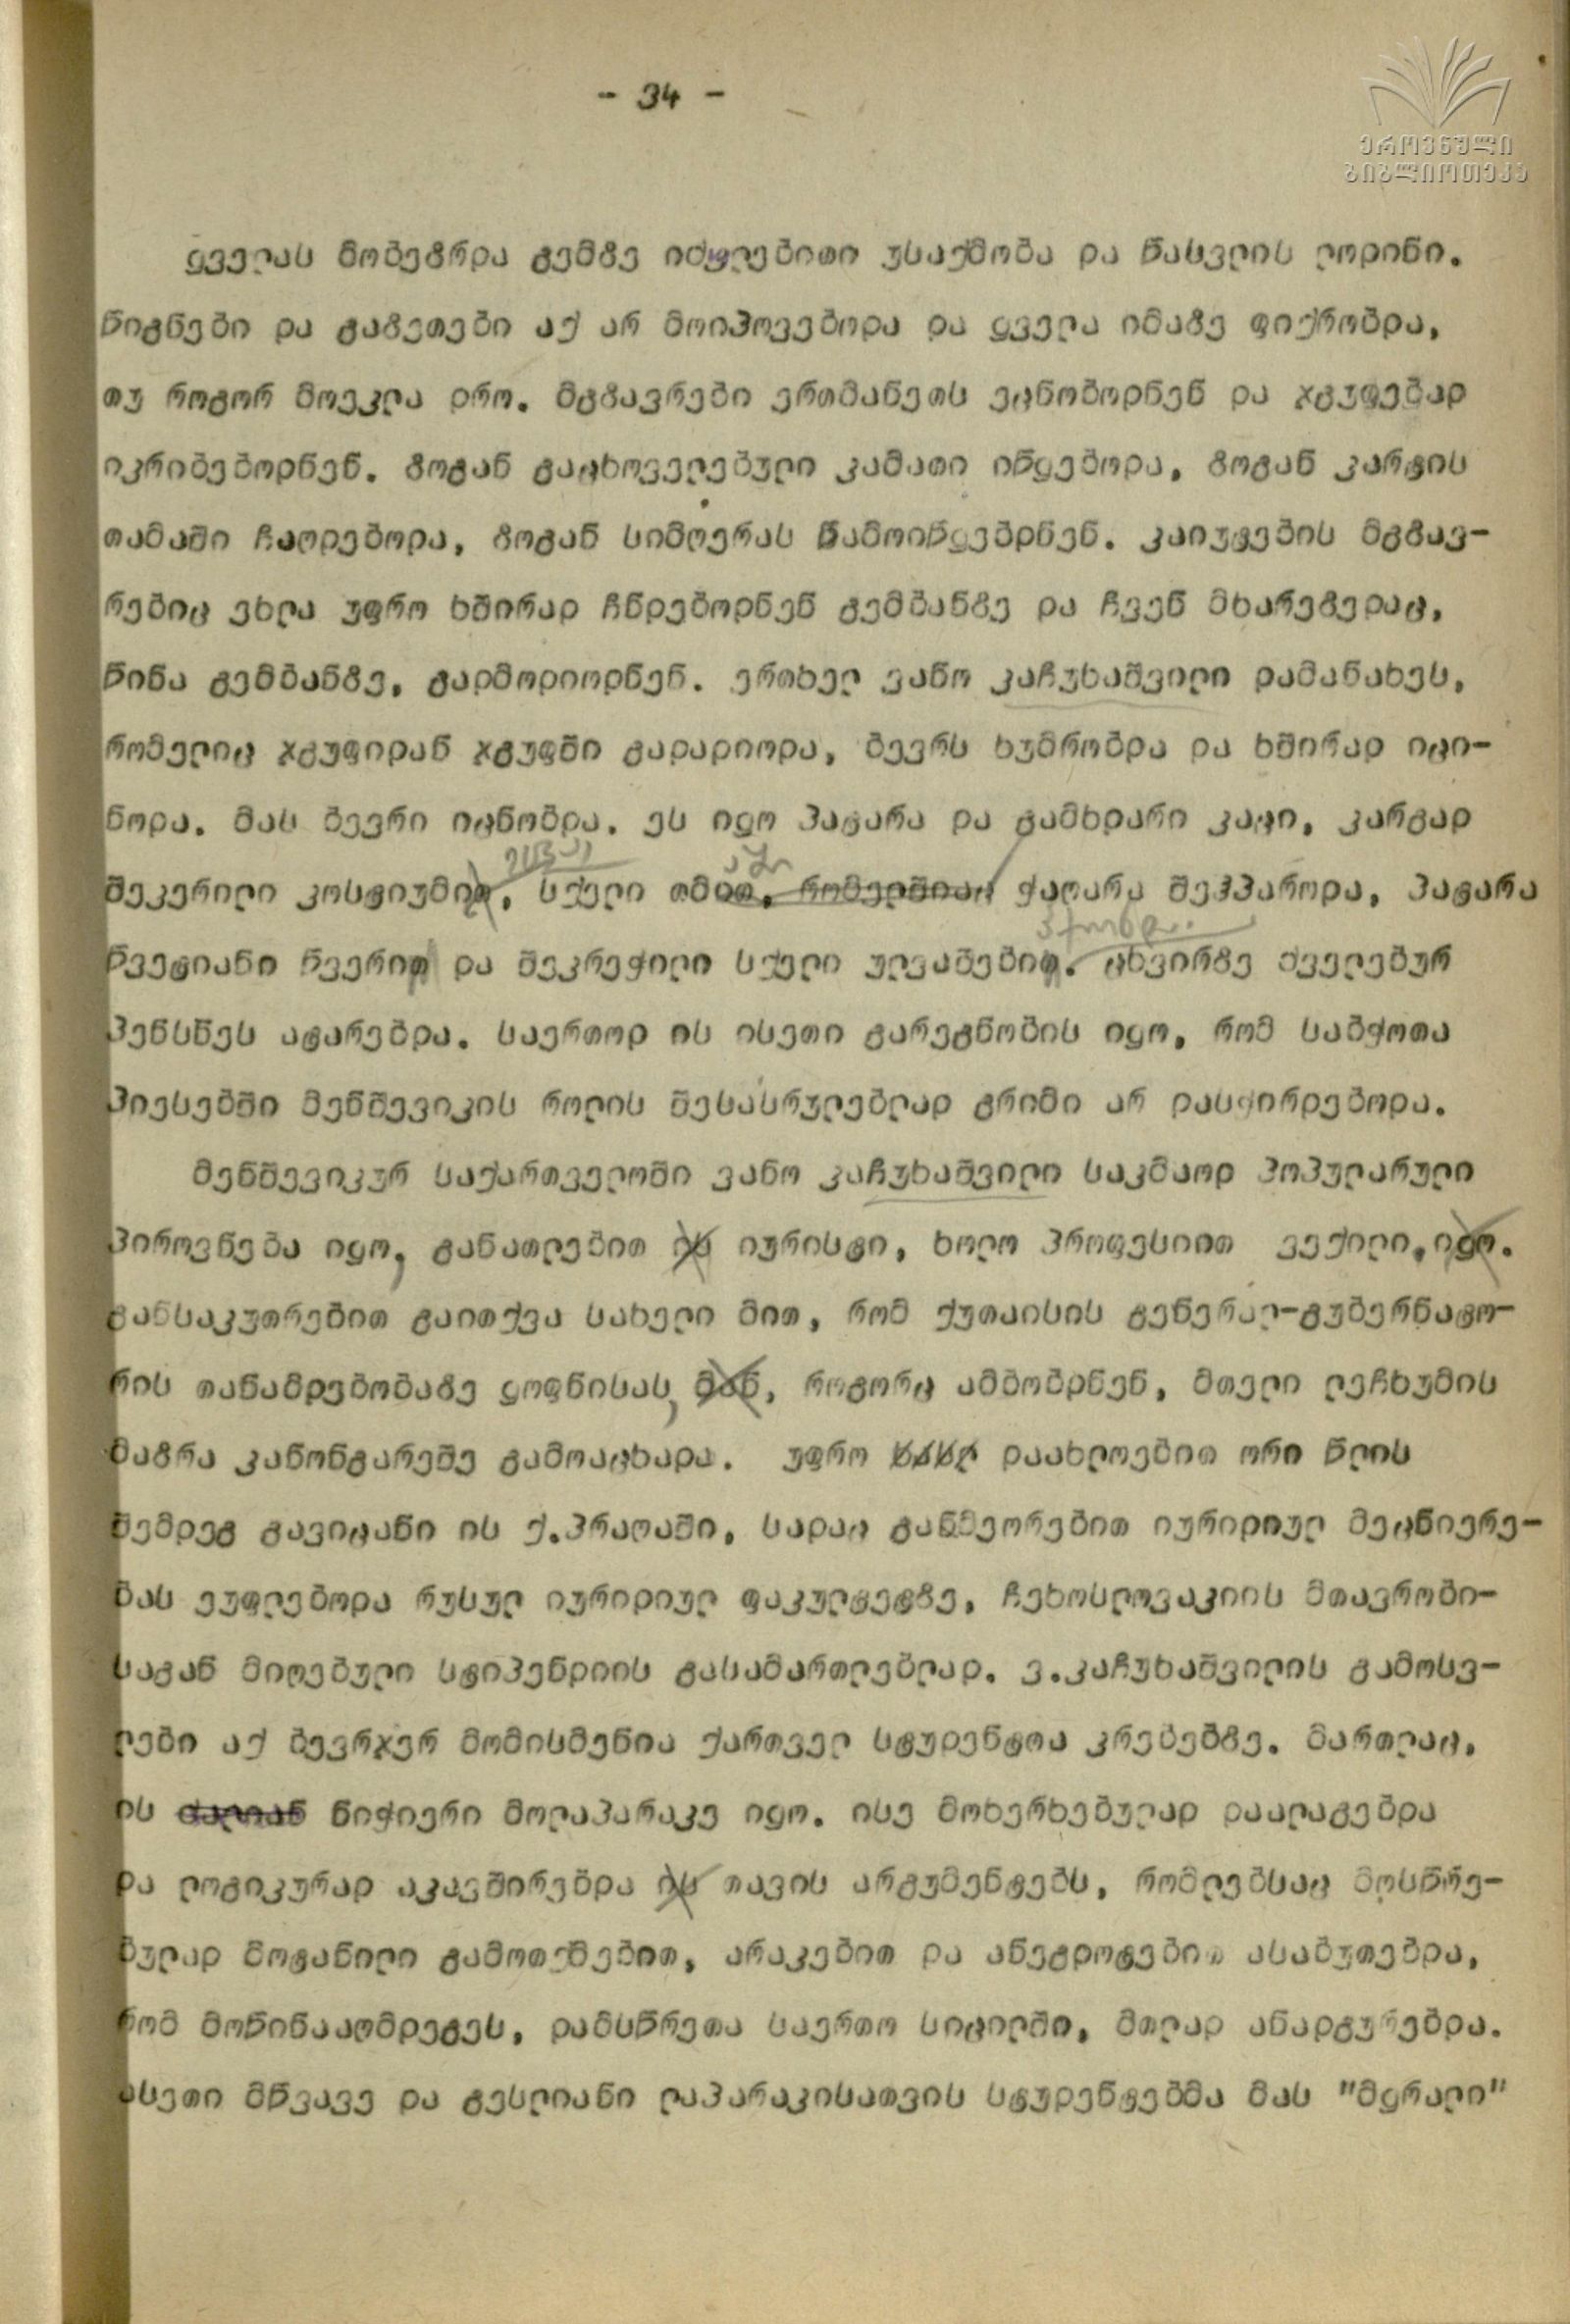 - 34 -
ეროვნული
ბიბლიოთეკა
ყველას მობეზრდა გემზე იძულებითი უსაქმობა და წასვლის ლოდინი.
წიგნები და გაზეთები აქ არ მოიპოვებოდა და ყველა იმაზე ფიქრობდა,
თუ როგორ მოეკლა დრო. მგზავრები ერთმანეთს ეცნობოდნენ და ჯგუფებად
იკრიბებოდნენ. ზოგან გაცხოველებული კამათი იწყებოდა, ზოგან კარტის
თამაში ჩაღდებოდა, ზოგან სიმღერას წამოიწყებდნენ. კაიუტების მგზავ-
რებიც ეხლა უფრო ხშირად ჩნდებოდნენ გემბანზე და ჩვენ მხარეზედაც,
წინა გემბანზე, გადმოდიოდნენ. ერთხელ ვანო კაჩუხაშვილი დამანახეს,
რომელიც ჯგუფიდან ჯგუფში გადადიოდა, ბევრს ხუმრობდა და ხშირად იცი-
ნოდა. მას ბევრი იცნობდა. ეს იყო პატარა და გამხდარი კაცი, კარგად
შეკერილი კოსტიუმით, სქელი თმით, რომელშიაც ჭაღარა შეჰპაროდა, პატარა
წვეტიანი წვერით და შეკრეჭილი სქელი ულვაშებით. ცხვირზე ძველებურ
პენსნეს ატარებდა. საერთოდ ის ისეთი გარეგნობის იყო, რომ საბჭოთა
პიესებში მენშევიკის როლის შესასრულებლად გრიმი არ დასჭირდებოდა.
მენშევიკურ საქართველოში ვანო კაჩუხაშვილი საკმაოდ პოპულარული
პიროვნება იყო, განათლებით ის იურისტი, ხოლო პროფესიით ვექილი, იყო.
განსაკუთრებით გაითქვა სახელი მით, რომ ქუთაისის გენერალ-გუბერნატო-
რის თანამდებობაზე ყოფნისას, მან, როგორც ამბობდნენ, მთელი ლეჩხუმის
მაზრა კანონგარეშე გამოაცხადა. უფრო დაახლოებით ორი წლის
შემდეგ გავიცანი ის ქ.პრაღაში, სადაც განმეორებით იურიდიულ მეცნიერე-
ბას ეუფლებოდა რუსულ იურიდიულ ფაკულტეტზე, ჩეხოსლოვაკიის მთავრობი-
საგან მიღებული სტიპენდიის გასამართლებლად. ვ.კაჩუხაშვილის გამოსვ-
ლები აქ ბევრჯერ მომისმენია ქართველ სტუდენტთა კრებებზე. მართლაც,
ის ძალიან ნიჭიერი მოლაპარაკე იყო. ისე მოხერხებულად დაალაგებდა
და ლოგიკურად აკავშირებდა ის თავის არგუმენტებს, რომლებსაც მოსწრე-
ბულად მოტანილი გამოთქმებით, არაკებით და ანეგდოტებით ასაბუთებდა,
რომ მოწინააღმდეგეს, დამსწრეთა საერთო სიცილში, მთლად ანადგურებდა.
ასეთი მწვავე და გესლიანი ლაპარაკისათვის სტუდენტებმა მას "მყრალი"